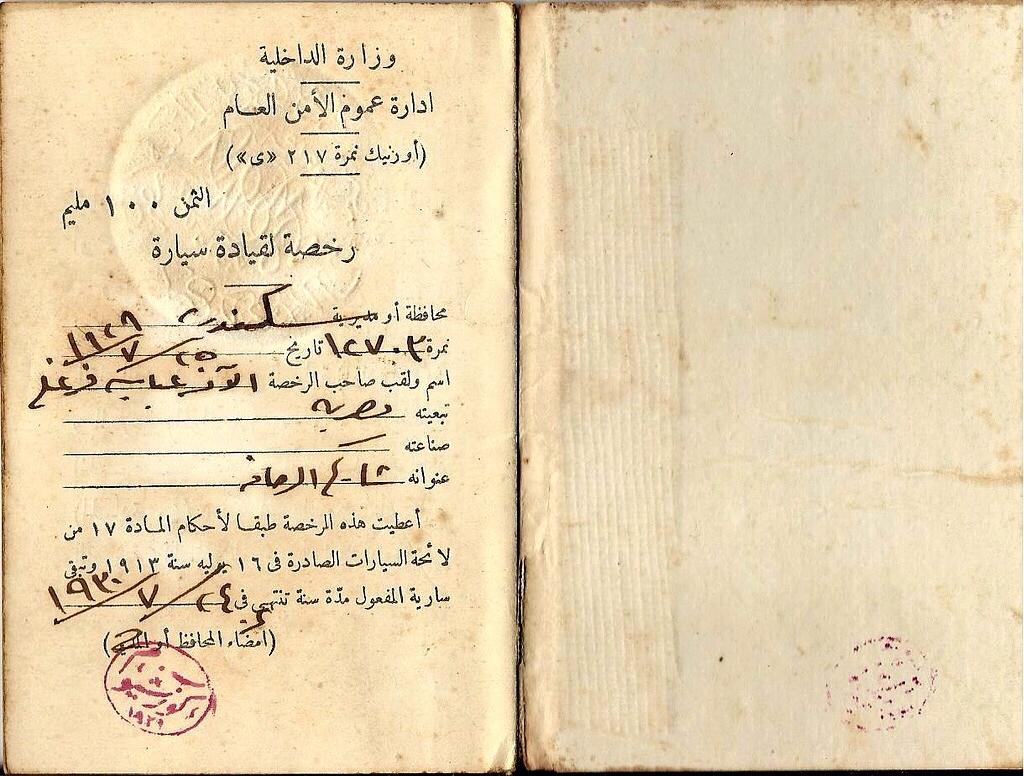 وزارة الداخلية
ادارة عموم الأمن العام
(أورنيك نمرة ٢١٧ «ى»)
الثمن ١٠٠ مليم
رخصة لقيادة سيارة
محافظة أو مديرية
نمرة ١٢٧٠٣ تاريخ ٢٥/٧/١٩٢٨
اسم ولقب صاحب الرخصة
تبعيته مصريه
صناعته
عنوانه شارع الرصافه
أعطيت هذه الرخصة طبقا لأحكام المادة ١٧ من
لائحة السيارات الصادرة فى ١٦ يوليه سنة ١٩١٣ وتبقى
سارية المفعول مدّة سنة تنتهى فى ٢٤/٧/١٩٣٠
(امضاء المحافظ أو المدير)